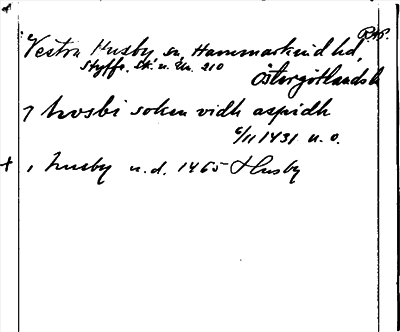 Vestra Husby sn, Hammarkind hd,
Styffe, Sk. u. Un. 210
Östergötlands l.
hosbi soken vidh aspidh
6/11 1431 u. o.
+ , husby u. d. 1465 Husby